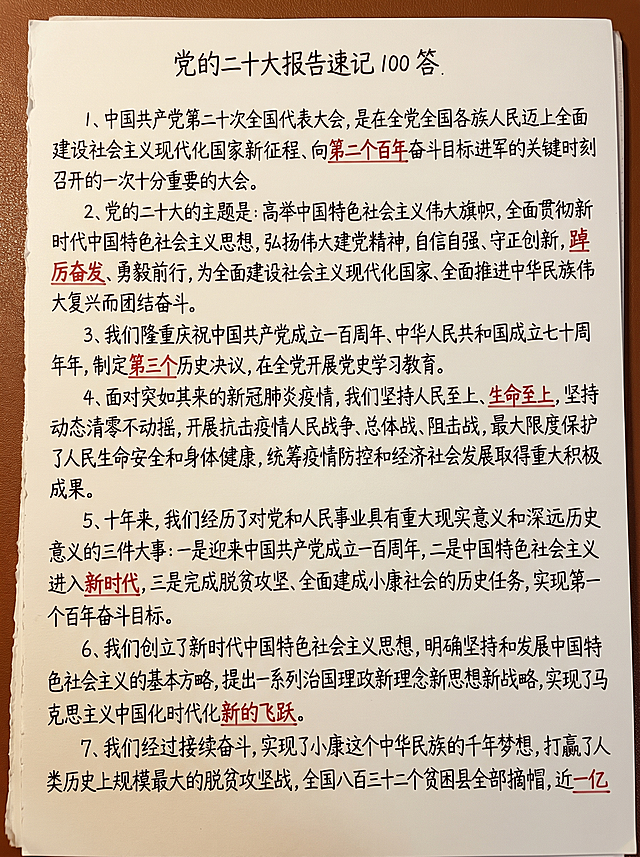 党的二十大报告速记100答.
1、中国共产党第二十次全国代表大会,是在全党全国各族人民迈上全面
建设社会主义现代化国家新征程、向第二个百年奋斗目标进军的关键时刻
召开的一次十分重要的大会。
2、党的二十大的主题是:高举中国特色社会主义伟大旗帜,全面贯彻新
时代中国特色社会主义思想,弘扬伟大建党精神,自信自强、守正创新,踔
厉奋发、勇毅前行,为全面建设社会主义现代化国家、全面推进中华民族伟
大复兴而团结奋斗。
3、我们隆重庆祝中国共产党成立一百周年、中华人民共和国成立七十周
年年,制定第三个历史决议,在全党开展党史学习教育。
4、面对突如其来的新冠肺炎疫情,我们坚持人民至上、生命至上,坚持
动态清零不动摇,开展抗击疫情人民战争、总体战、阻击战,最大限度保护
了人民生命安全和身体健康,统筹疫情防控和经济社会发展取得重大积极
成果。
5、十年来,我们经历了对党和人民事业具有重大现实意义和深远历史
意义的三件大事:一是迎来中国共产党成立一百周年,二是中国特色社会主义
进入新时代,三是完成脱贫攻坚、全面建成小康社会的历史任务,实现第一
个百年奋斗目标。
6、我们创立了新时代中国特色社会主义思想,明确坚持和发展中国特
色社会主义的基本方略,提出一系列治国理政新理念新思想新战略,实现了马
克思主义中国化时代化新的飞跃。
7、我们经过接续奋斗,实现了小康这个中华民族的千年梦想,打赢了人
类历史上规模最大的脱贫攻坚战,全国八百三十二个贫困县全部摘帽,近一亿